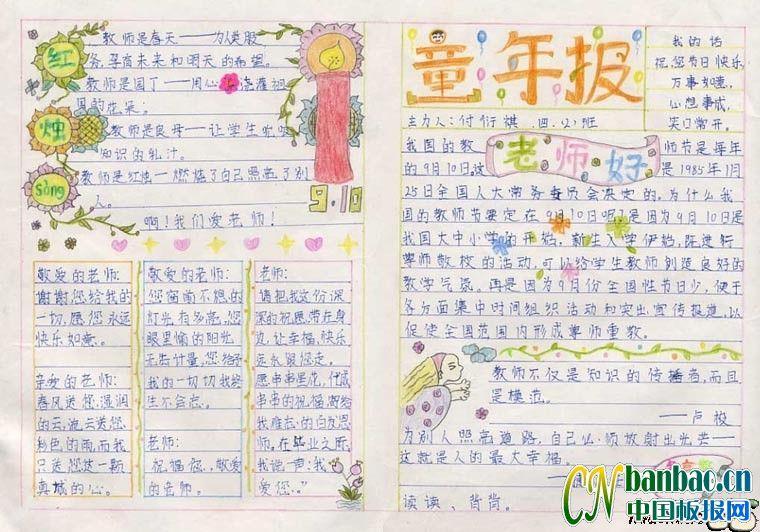 红
烛
Song
教师是春天——为人类服
务,孕育未来和明天的希望。
教师是园丁——用心 浇灌祖
国的花朵。
教师是良母——让学生吮吸
知识的乳汁。
教师是红烛——燃烧了自己照亮了别
人。
啊!我们爱老师!
9.10
敬爱的老师:
谢谢您给我的
一切,愿您永远
快乐如意。
亲爱的老师:
春风送您湿润
的云,
彩色的雨,而我
只送您这一颗
真诚的心。
敬爱的老师:
灯光有多亮,您
眼里愉的阳光
无告计量,您给予
我的一切切我终
生不会忘。
老师:
祝福您、敬爱
的老师。
老师:
请把我这份深
深的祝愿带在身
边,让幸福、快乐
永永跟您走。
愿串串里花,代成
串串的祝福,寄给
我难忘的白发恩
师,在毕业之际
我说声:我
爱您!"
童年报
我的话
祝您节日快乐,
万事如意,
心想事成,
笑口常开。
主力人:付衍棋 四、(2)班
老师好
我国的教 师节是每年
的9月10日,这 是1985年1月
25日全国人大常务委员会决定的。为什么我
国的教师节要定在9月10日呢?是因为9月10日是
我国大中小学的开始,新生入学伊始,
尊师敬校的活动,可以给学生教师创造良好的
教学气氛。再是因为9月份全国性节日少,便于
各方面集中时间组织活动和突出宣传报道,以
促使全国范围内形成尊师重教。
教师不仅是知识的传播者,而且
是模范。
——卢梭
为别人照亮道路,自己必须放射出光芒——
这就是人的最大幸福。
读读、背背。
CNbanbao.cn
中国板报网